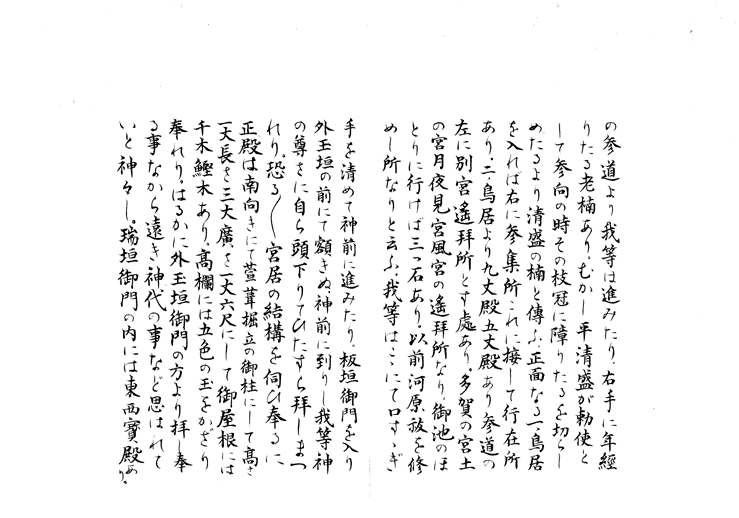 の参道より我等は進みたり、右手に年經
りたる老楠あり。むかし平清盛が勅使と
して参向の時その枝冠に障りたるを切らし
めたるより清盛の楠と傳ふ。正面なる一ノ鳥居
を入れば右に参集所これに接して行在所
あり。二ノ鳥居より九丈殿五丈殿あり参道の
左に別宮遙拝所とす處あり。多賀の宮土
の宮月夜見宮風宮の遙拝所なり。御池のほ
とりに行けば三つ石あり。以前河原祓を修
めし所なりと云ふ。我等はこゝにて口すゝぎ
手を清めて神前に進みたり、板垣御門を入り
外玉垣の前にて額きぬ。神前に到りし我等神
の尊さに自ら頭下りてひたすら拝しまつ
れり。恐る〱宮居の結構を伺ひ奉るに
正殿は南向きにて萱葺掘立の御柱にして高さ
一丈長さ三丈廣さ一丈六尺にして御屋根には
千木鰹木あり、高欄には五色の玉をかざり
奉れり。はるかに外玉垣御門の方より拝し奉
る事ながら遠き神代の事など思はれて
いと神々し。瑞垣御門の内には東西寶殿あり。